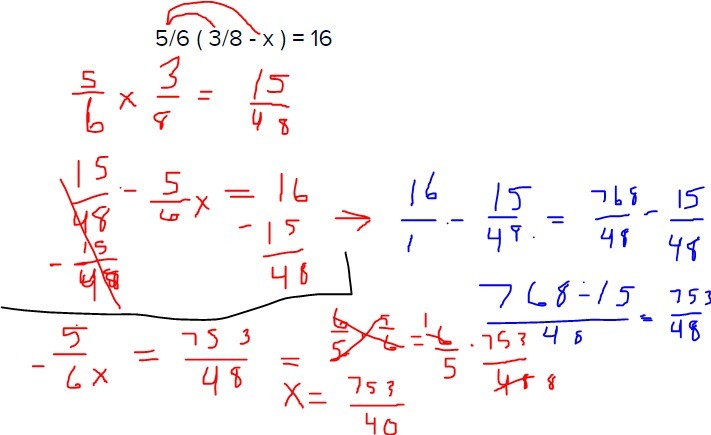 5/6 ( 3/8 - x ) = 16
5/6 x 3/8 = 15/48
15/48 - 5/6 x = 16
- 15/48 - 15/48
→ 16/1 - 15/48 = 768/48 - 15/48
768-15/48 = 753/48
- 5/6 x = 753/48 = 6/5 5/6 = 1 6/5 · 753/48 8
x = 753/40